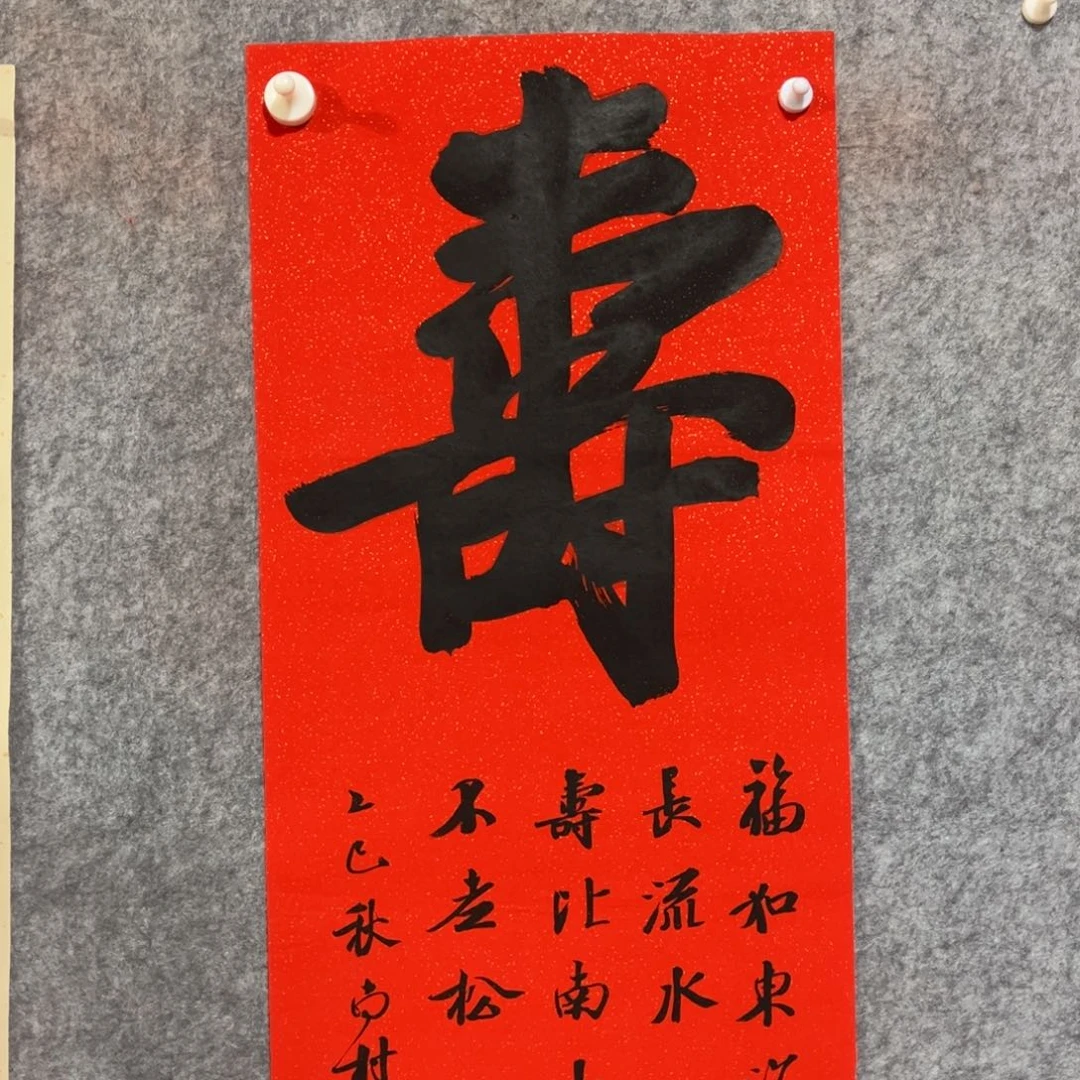 壽
福如東海
長流水
壽比南山
不老松
乙巳秋